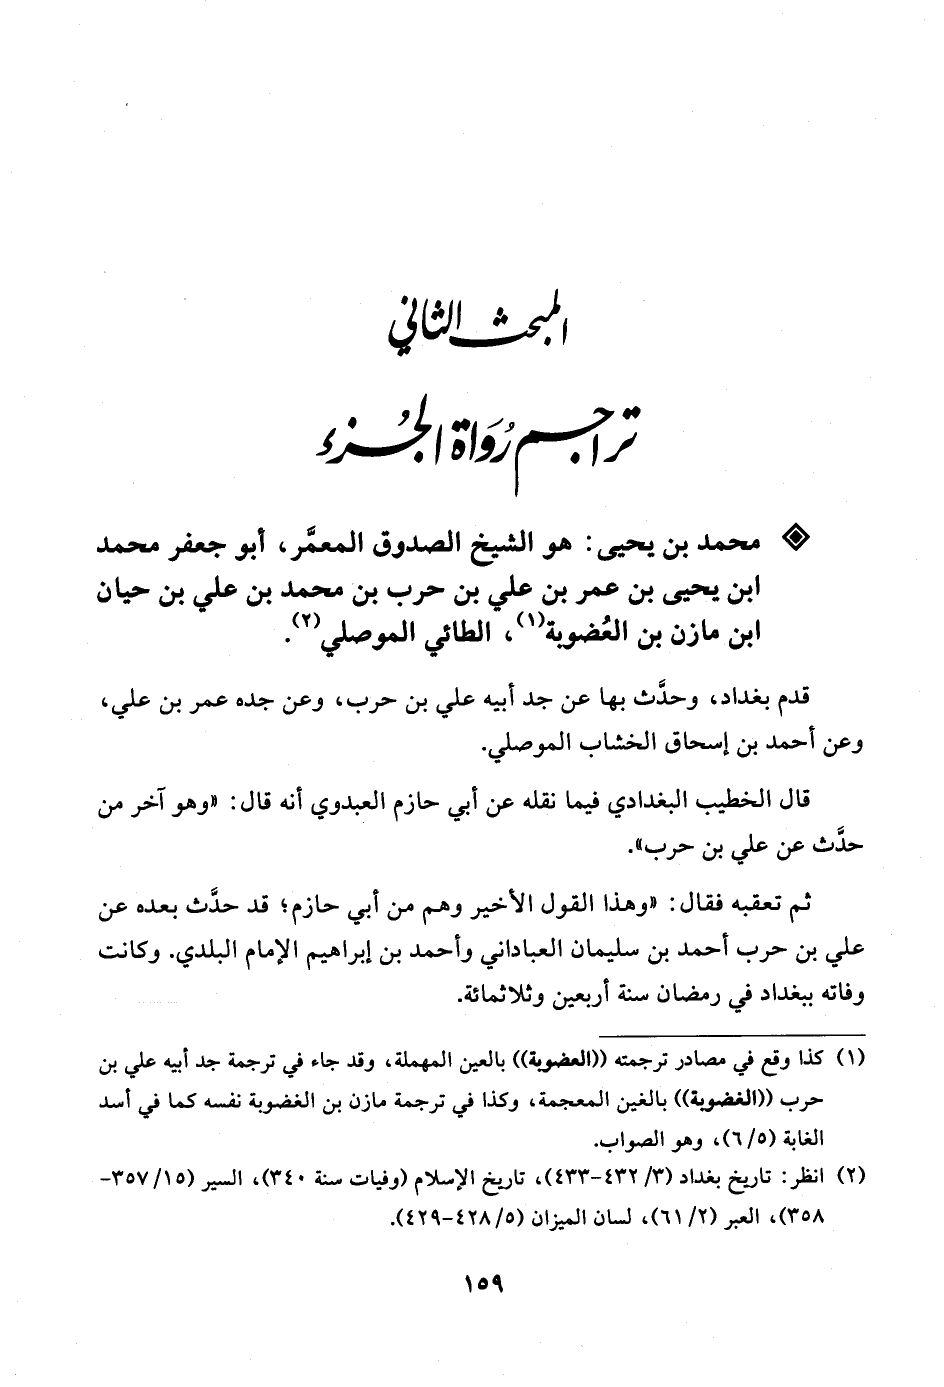 المبحث الثاني
تراجم رُوَاة الجُزء
محمد بن يحيى: هو الشيخ الصدوق المعمَّر، أبو جعفر محمد
ابن يحيى بن عمر بن علي بن حرب بن محمد بن علي بن حيان
ابن مازن بن العُضوبة(١)، الطائي الموصلي(٢).
قدم بغداد، وحدَّث بها عن جد أبيه علي بن حرب، وعن جده عمر بن علي،
وعن أحمد بن إسحاق الخشاب الموصلي.
قال الخطيب البغدادي فيما نقله عن أبي حازم العبدوي أنه قال: «وهو آخر من
حدَّث عن علي بن حرب».
ثم تعقبه فقال: «وهذا القول الأخير وهم من أبي حازم؛ قد حدَّث بعده عن
علي بن حرب أحمد بن سليمان العباداني وأحمد بن إبراهيم الإمام البلدي. وكانت
وفاته ببغداد في رمضان سنة أربعين وثلاثمائة.
(١) كذا وقع في مصادر ترجمته ((العضوبة)) بالعين المهملة، وقد جاء في ترجمة جد أبيه علي بن
حرب ((الغضوبة)) بالغين المعجمة، وكذا في ترجمة مازن بن الغضوبة نفسه كما في أسد
الغابة (٦/٥)، وهو الصواب.
(٢) انظر: تاريخ بغداد (٣/ ٤٣٢-٤٣٣)، تاريخ الإسلام (وفيات سنة ٣٤٠)، السير (١٥/ ٣٥٧-
٣٥٨)، العبر (٢/ ٦١)، لسان الميزان (٥/ ٤٢٨-٤٢٩).
١٥٩